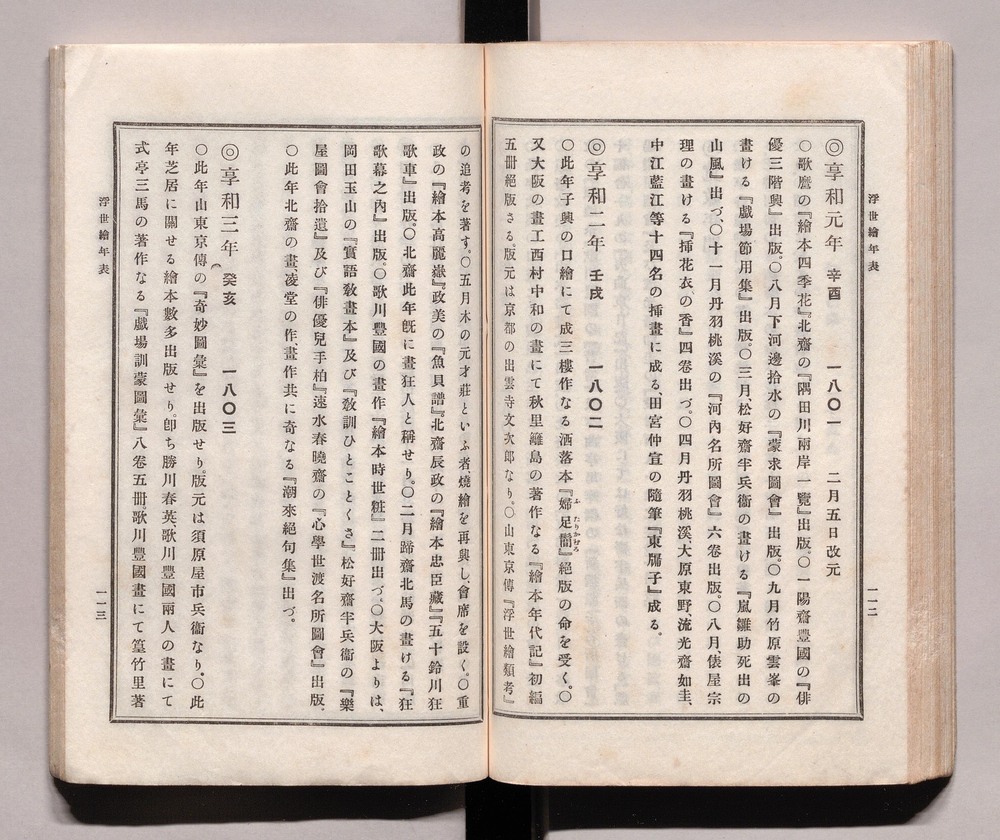 浮世繪年表
一一二
◎享和元年 辛酉 一八〇一 二月五日改元
〇歌麿の『繪本四季花』北齋の『隅田川兩岸一覽』出版。〇一陽齋豐國の『俳
優三階興』出版。〇八月下河邊拾水の『蒙求圖會』出版。〇九月竹原雲峯の
畫ける『戲場節用集』出版。〇三月、松好齋半兵衞の畫ける『嵐雛助死出の
山風』出づ、〇十一月丹羽桃溪の『河內名所圖會』六卷出版。〇八月、俵屋宗
理の畫ける『揷花衣の香』四卷出づ。〇四月丹羽桃溪、大原東野、流光齋如圭、
中江藍江等十四名の揷畫に成る、田宮仲宣の隨筆『東牖子』成る。
◎享和二年 壬戌 一八〇二
〇此年子興の口繪にて成三樓作なる洒落本『婦足鬜』絕版の命を受く。〇
又大阪の畫工西村中和の畫にて秋里籬島の著作なる『繪本年代記』初編
五冊絕版さる版元は京都の出雲寺文次郎なり。〇山東京傳『浮世繪類考』
の追考を著す。〇五月木の元才莊といふ者、燒繪を再興し、會席を設く。〇重
政の『繪本高麗嶽』政美の『魚貝譜』北齋辰政の『繪本忠臣藏』『五十鈴川狂
歌車』出版。〇北齋此年旣に畫狂人と稱せり。〇二月蹄齋北馬の畫ける『狂
歌幕之內』出版。〇歌川豐國の畫作『繪本時世粧』二冊出づ。〇大阪よりは、
岡田玉山の『實語敎畫本』及び『敎訓ひとことくさ』、松好齋半兵衞の『樂
屋圖會拾遺』及び『俳優兒手柏』『速水春曉齋の『心學世渡名所圖會』出版。
〇此年北齋の畫、凌堂の作、畫作共に奇なる『潮來絕句集』出づ。
◎享和三年 癸亥 一八〇三
〇此年山東京傳の『奇妙圖彙』を出版せり。版元は須原屋市兵衞なり。〇此
年芝居に關せる繪本數多出版せり。卽ち勝川春英、歌川豐國兩人の畫にて
式亭三馬の著作なる『戲場訓蒙圖彙』八卷五冊。歌川豐國畫にて篁竹里著
浮世繪年表
一一三